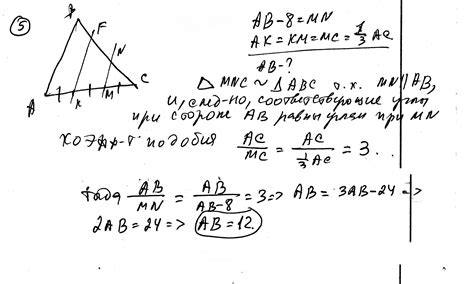 5
B
F
N
A
K
M
C
AB-8=MN
AK=KM=MC=1/3 AC
AB-?
△ MNC ~ △ ABC т.к. MN || AB,
и, след-но, соответствующие углы
при стороне AB равны углам при MN
коэфф-т подобия AC/MC = AC/(1/3 AC) = 3.
тогда AB/MN = AB/(AB-8) = 3 => AB = 3AB-24 =>
2AB=24 => AB=12.